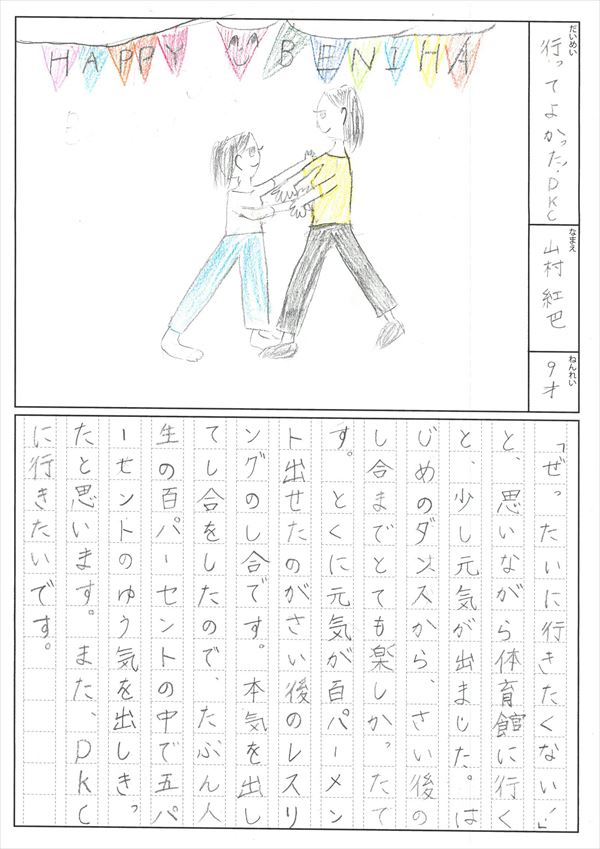 HAPPY BENIHA
だいめい
行ってよかった!DKC
なまえ
山村 紅巴
ねんれい
9才
「ぜったいに行きたくない!」
と、思いながら体育館に行く
と、少し元気が出ました。は
じめのダンスから、さい後の
し合までとても楽しかったで
す。とくに元気が百パーメン
ト出せたのがさい後のレスリ
ングのし合です。本気を出し
てし合をしたので、たぶん人
生の百パーセントの中で五パ
ーセントのゆう気を出しきっ
たと思います。また、DKC
に行きたいです。